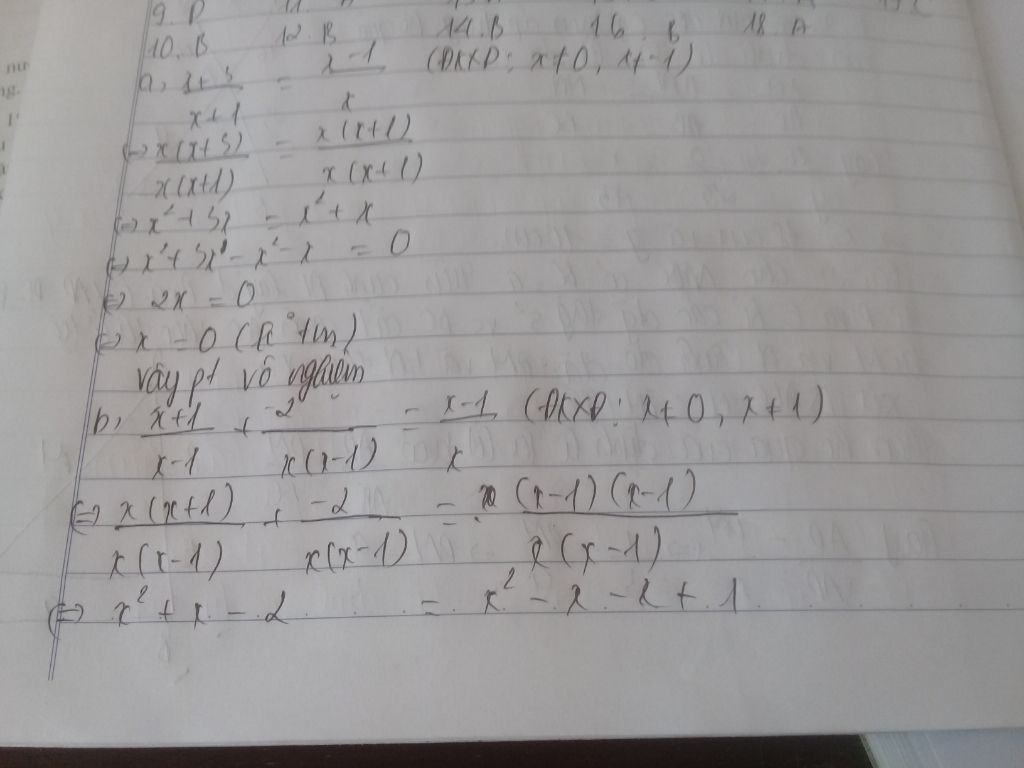 9. D
10. B 12. B 14. B 16. B 18. A
a, x+3/x+1 = x-1/x (ĐKXĐ: x≠0, x≠-1)
⇔ x(x+3)/x(x+1) = x(x+1)/x(x+1)
⇔ x² + 3x = x² + x
⇔ x² + 3x - x² - x = 0
⇔ 2x = 0
⇔ x = 0 (k° tm)
vậy pt vô nghiệm
b, x+1/x-1 + -2/x(x-1) = x-1/x (ĐKXĐ: x≠0, x≠1)
⇔ x(x+1)/x(x-1) + -2/x(x-1) = (x-1)(x-1)/x(x-1)
⇔ x² + x - 2 = x² - x - x + 1